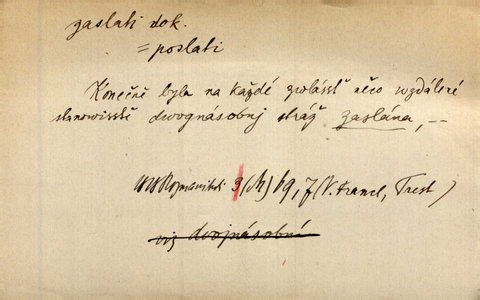 zaslati dok.
= poslati
Konečně byla na každé zvlášť něco vzdálené
stanowisstě dwognásobný stráž zaslána, --
3 69, 7 (V. Franel, Trest)
viz dvojnásobní